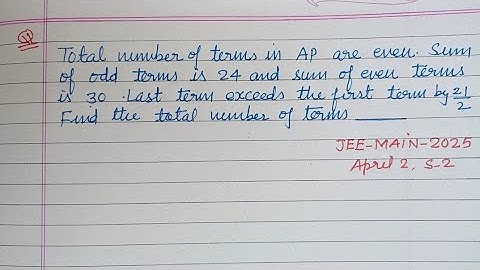 Q
Total number of terms in AP are even. Sum
of odd terms is 24 and sum of even terms
is 30. Last term exceeds the first term by 21/2
Find the total number of terms ______
JEE-MAIN-2025
April 2, S-2